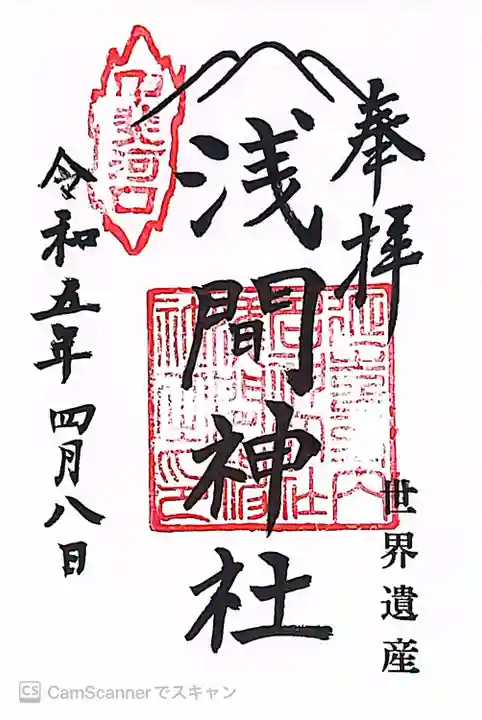 奉拝
世界遺産
浅間神社
河口
令和五年 四月八日
CS CamScannerでスキャン